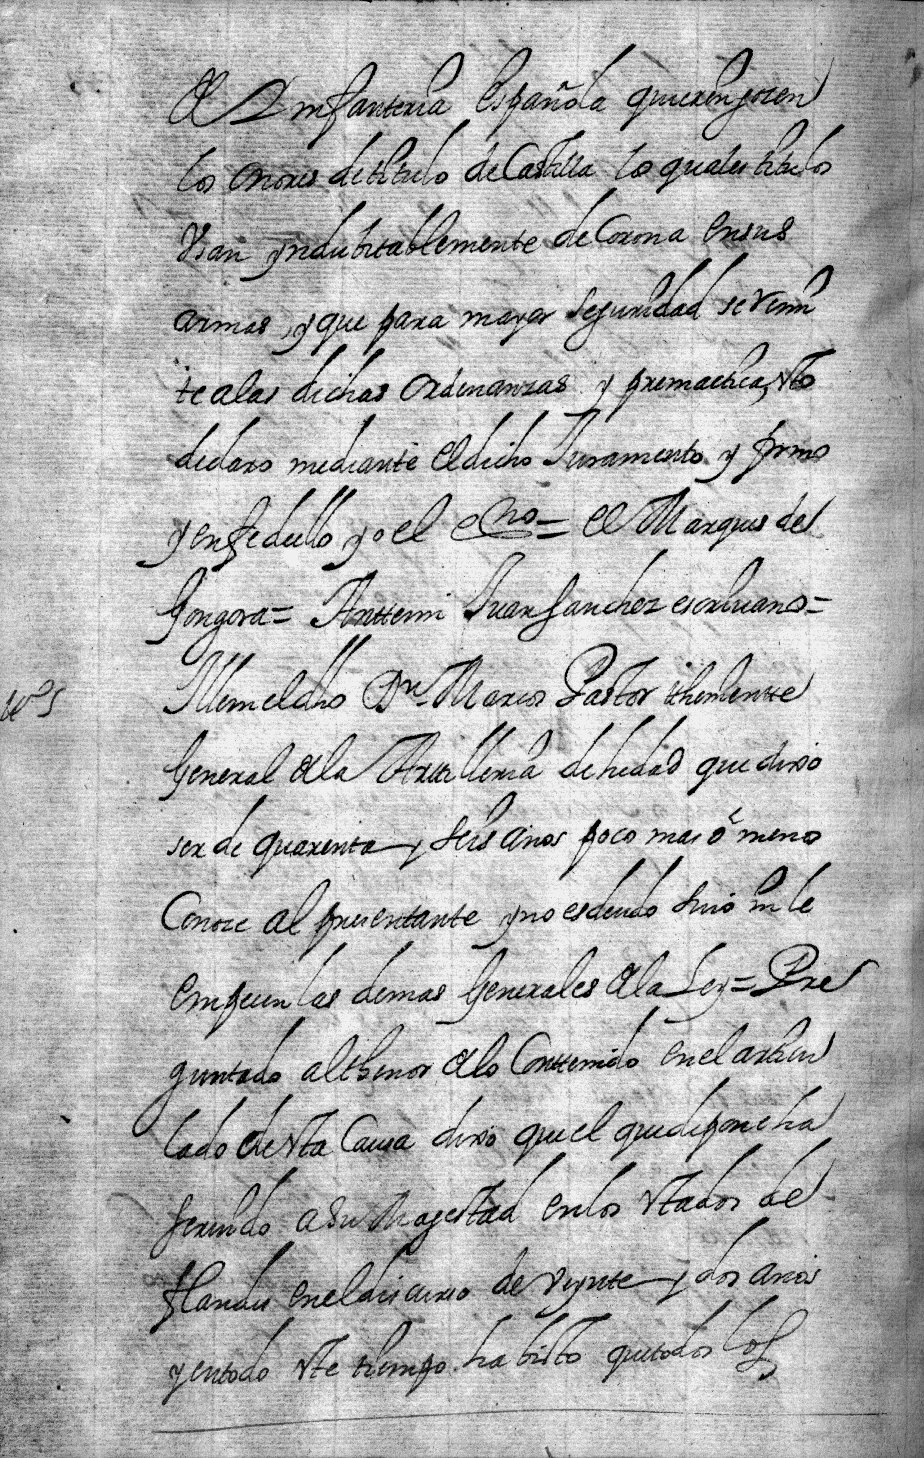 de Ynfanteria española quieren gozen
los onores de titulo de Castilla los quales titulos
Vsan yndubitablemente de Corona en sus
armas, y que para mayor seguridad se remi
te a las dichas ordenanzas y prematica, esto
declaro mediante el dicho Juramento y firmo
y en fe dello yo el esno = el Marques de
Gongora = Anttemi Juan Sanchez escriuano =
tgo
Ittem el dho Dn Marcos Pastor theniente
General de la Artilleria de hedad que dixo
ser de quarenta y seis años poco mas ó menos
Conoce al presentante y no es deudo suio ni le
empecen las demas Generales de la Ley = Pre
guntado al thenor de lo Conttenido en el articu
lado de esta Causa dixo que el que depone ha
seruido a Su Magestad en los estados de
flandes en el discurso de veynte y dos años
y en todo este tiempo ha bisto que todos los